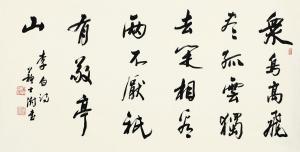 衆鳥高飛
尽孤雲獨
去閑相看
兩不厭祇
有敬亭
山
李白詩
蘇士澍書